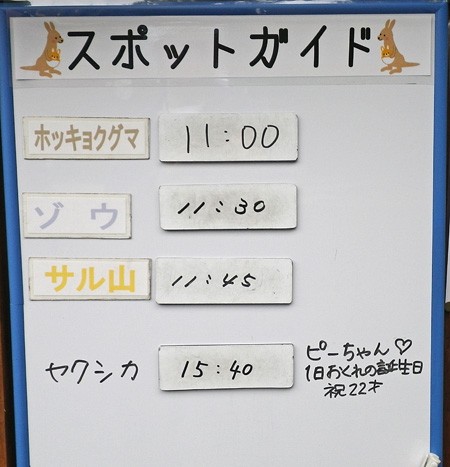 スポットガイド
ホッキョクグマ 11:00
ゾウ 11:30
サル山 11:45
ヤクシカ 15:40
ピーちゃん♡
1日おくれの誕生日
祝22才